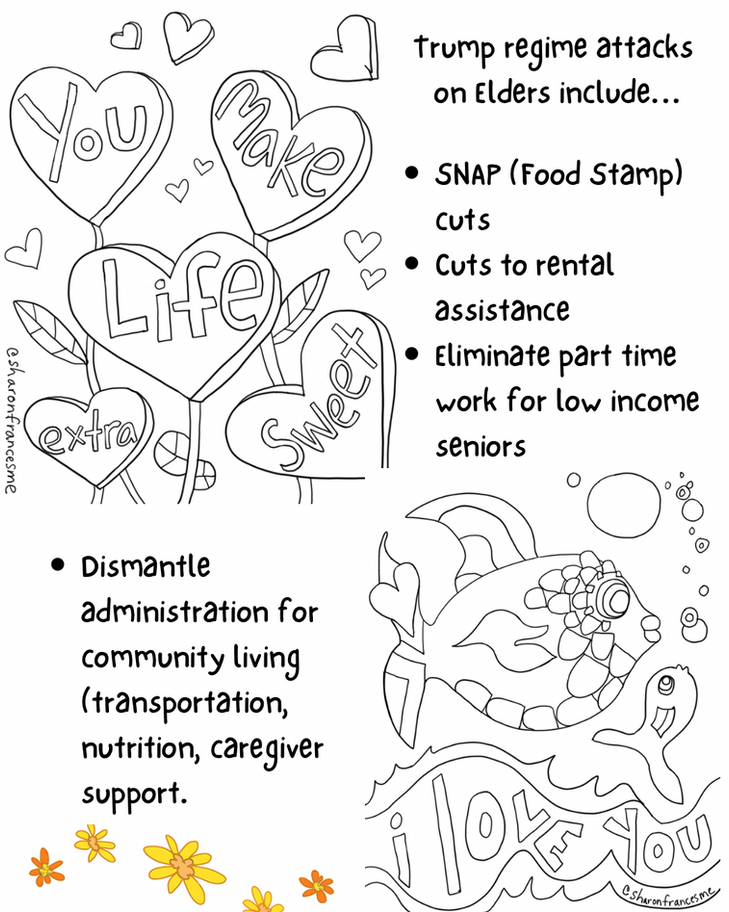 You
Make
Life
extra
Sweet
@sharonfrancesme
Trump regime attacks
on Elders include...
• SNAP (Food Stamp)
cuts
• Cuts to rental
assistance
• Eliminate part time
work for low income
seniors
• Dismantle
administration for
community living
(transportation,
nutrition, caregiver
support.
i lOVE YOU
@sharonfrancesme